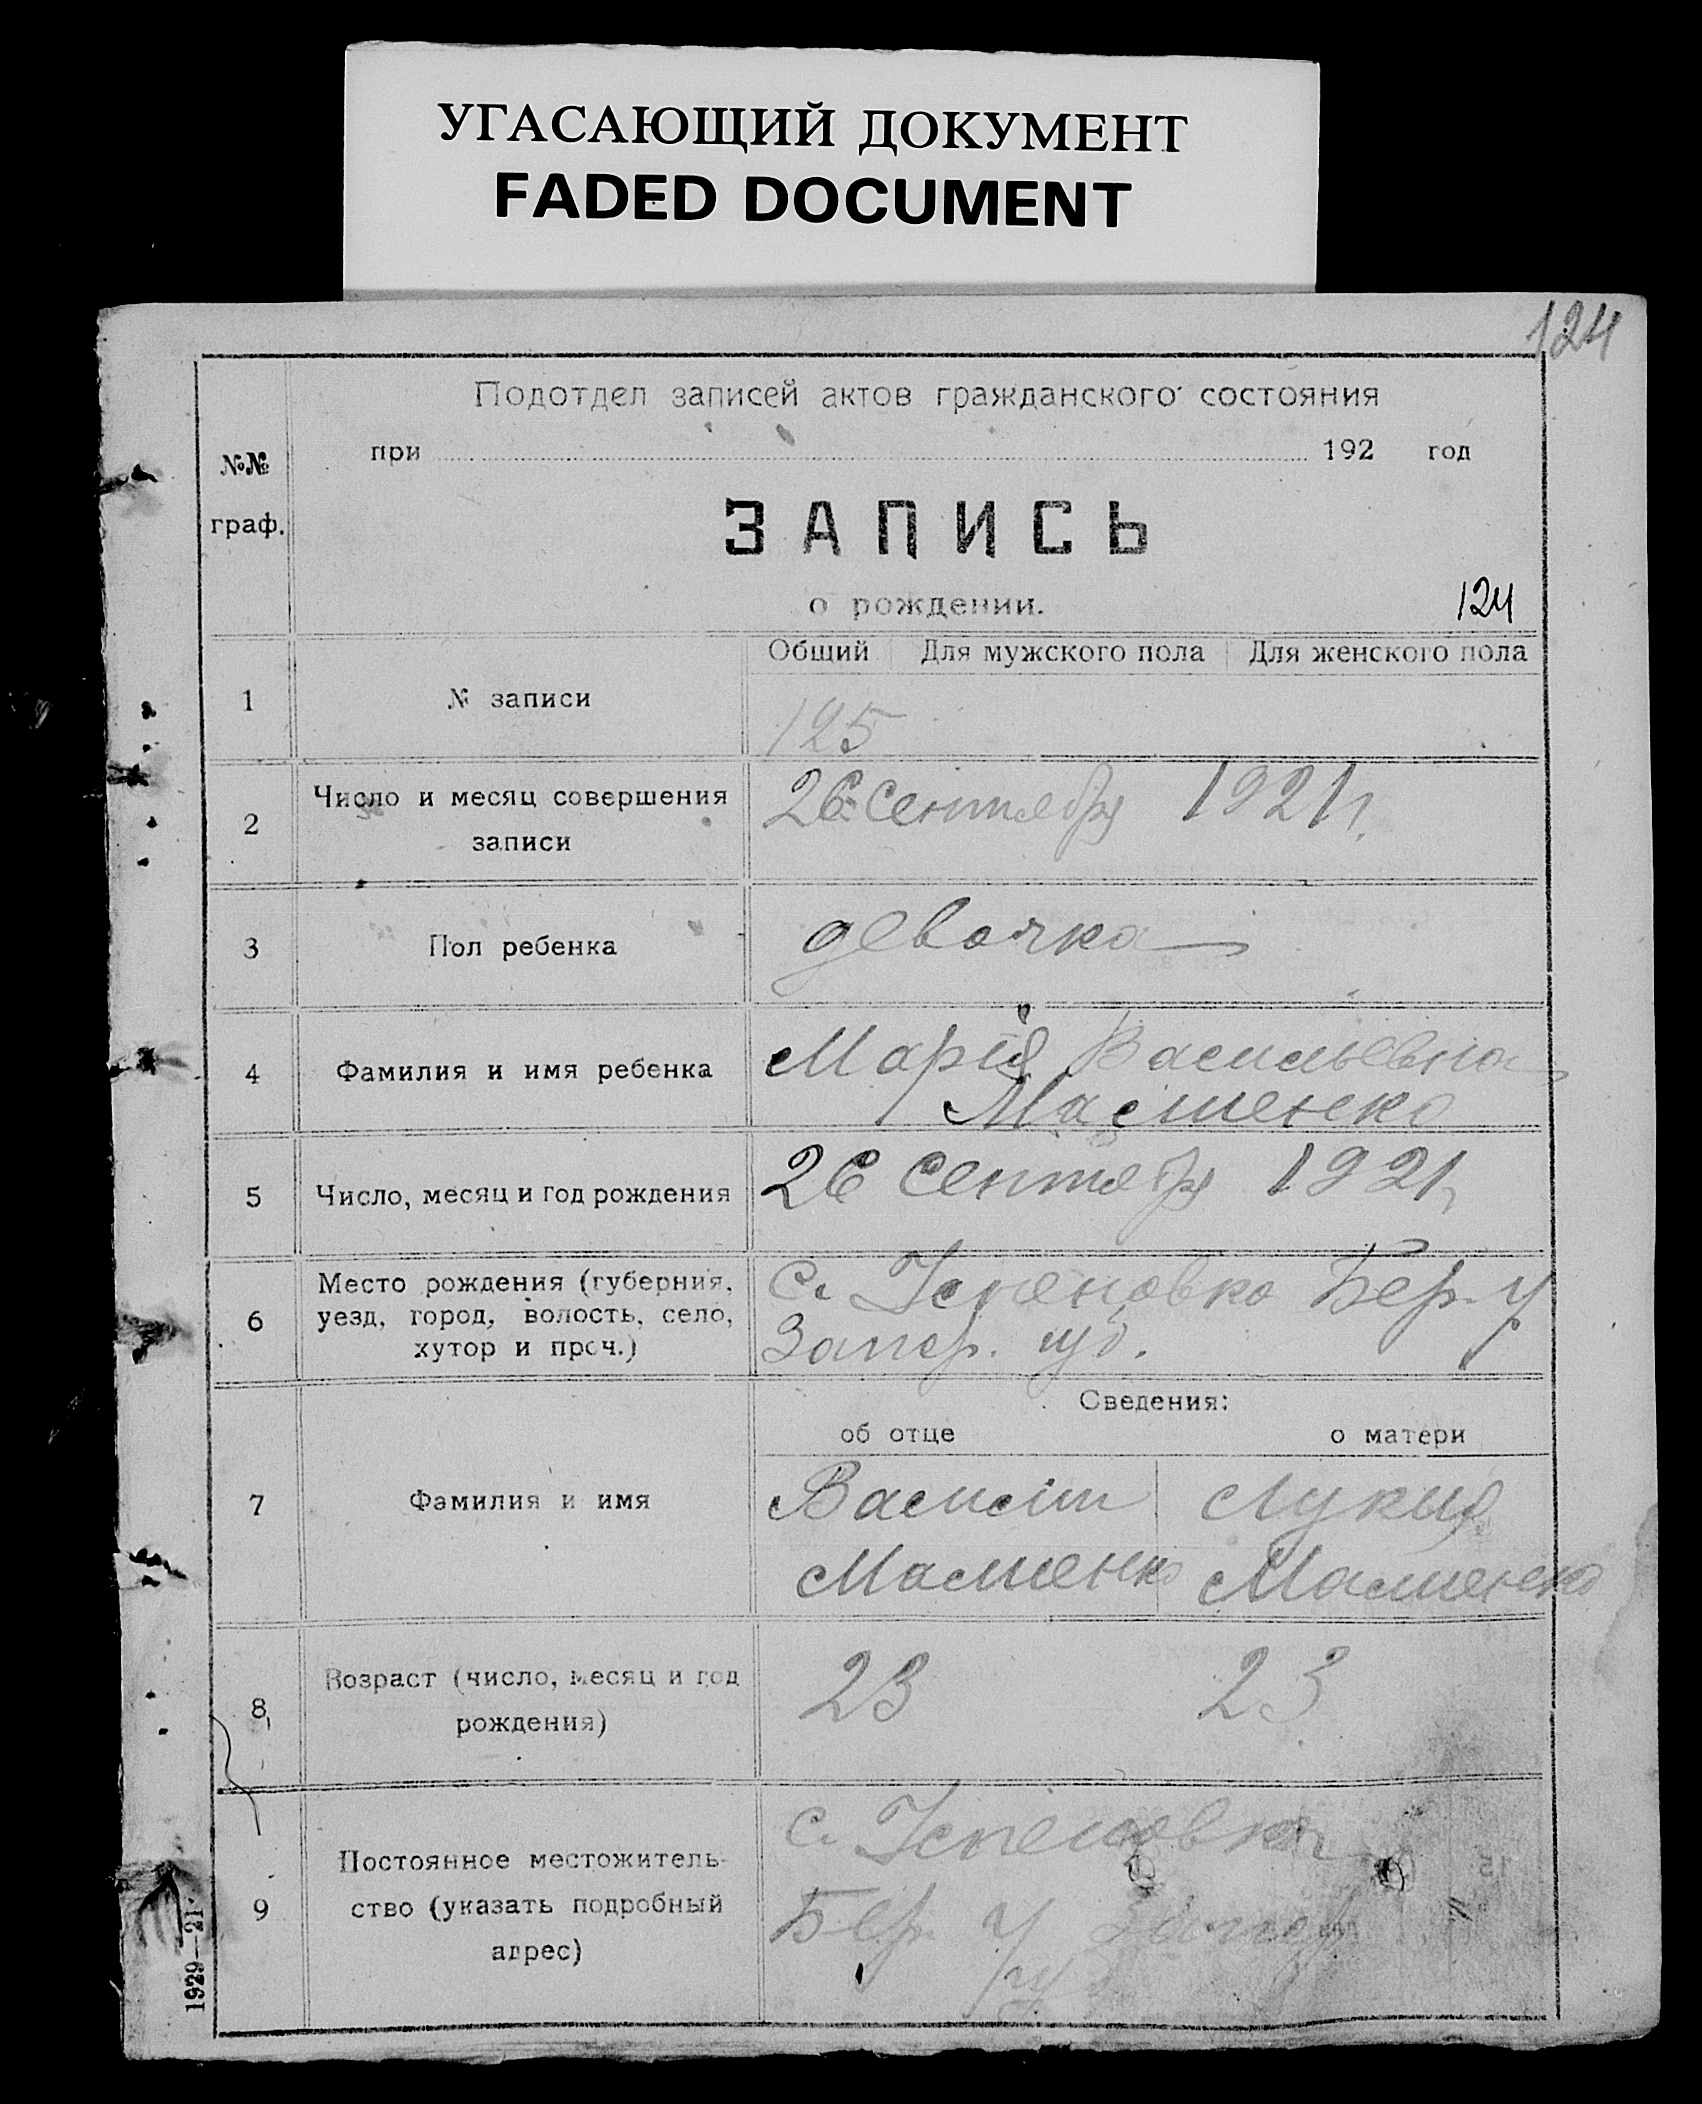 УГАСАЮЩИЙ ДОКУМЕНТ
FADED DOCUMENT
124
Подотдел записей актов гражданского состояния
при 192 год
№№
граф.
ЗАПИСЬ
о рождении.
124
Общий Для мужского пола Для женского пола
1 № записи
125
2 Число и месяц совершения
записи
26 Сентября 1921 г.
3 Пол ребенка
девочка
4 Фамилия и имя ребенка
Марія Васильевна
5 Число, месяц и год рождения
26 Сентябр 1921 г
6 Место рождения (губерния,
уезд, город, волость, село,
хутор и проч.)
с. Успеновка Бер. У
Запор. губ.
Сведения:
об отце о матери
7 Фамилия и имя
8 Возраст (число, месяц и год
рождения)
23 23
9 Постоянное местожитель-
ство (указать подробный
адрес)
с. Успеновка
Бер. У
1929—21.